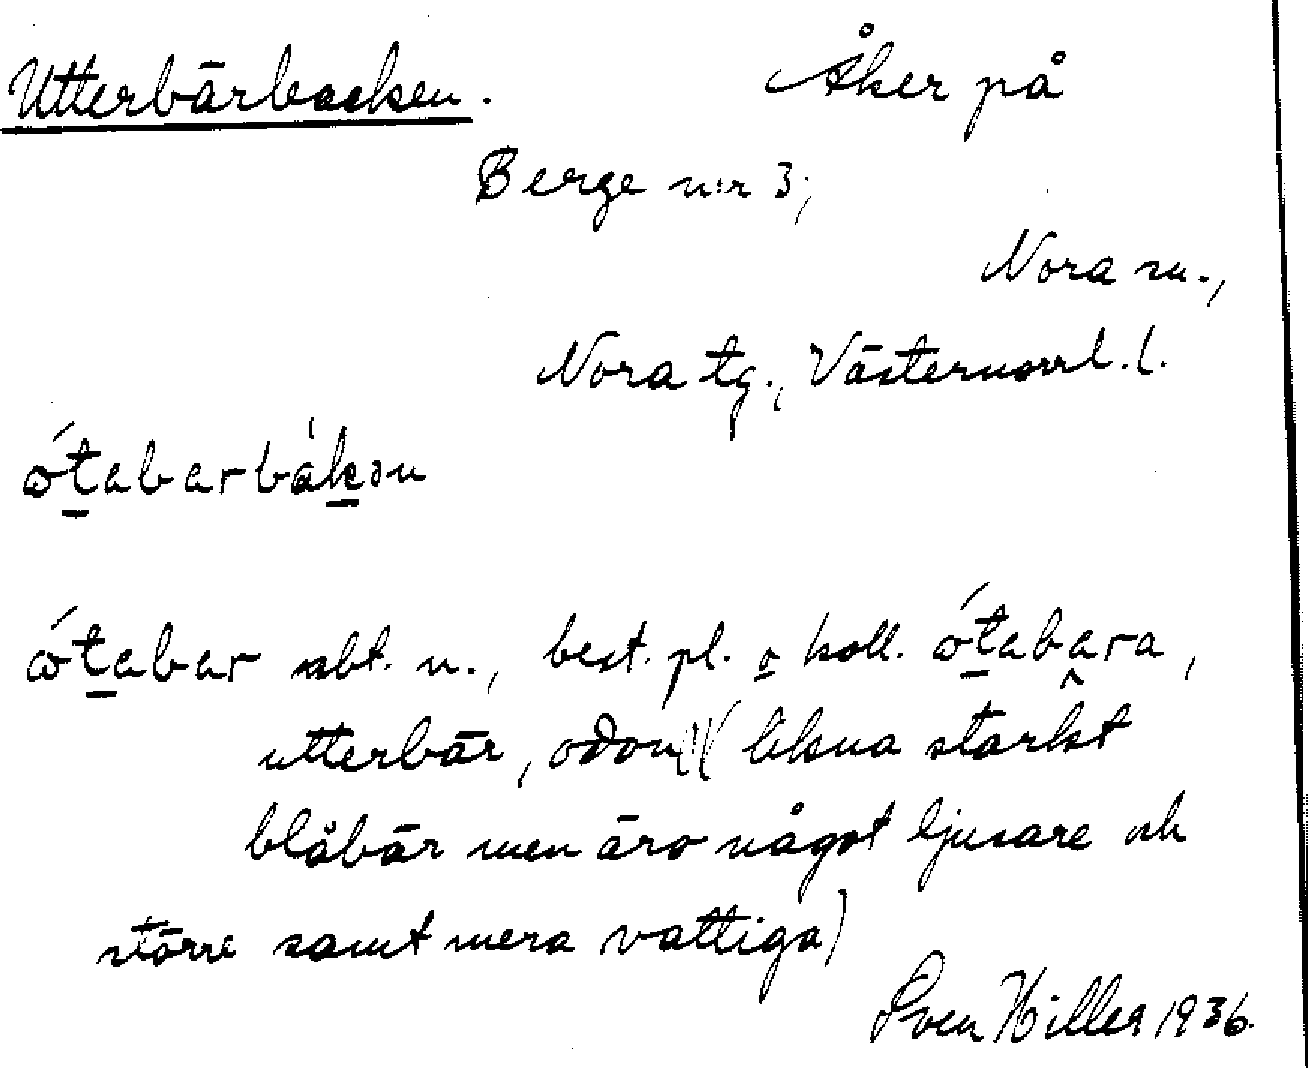 Utterbärbacken. Åker på
Berge n:r 3;
Nora sn.,
Nora tg., Västernorrl. l.
ótabarbákən
ótabar sbt. n., best. pl. o koll. ótabara,
utterbär, odon (likna starkt
blåbär men äro något ljusare och
större samt mera vattiga)
Sven Hillea 1936.